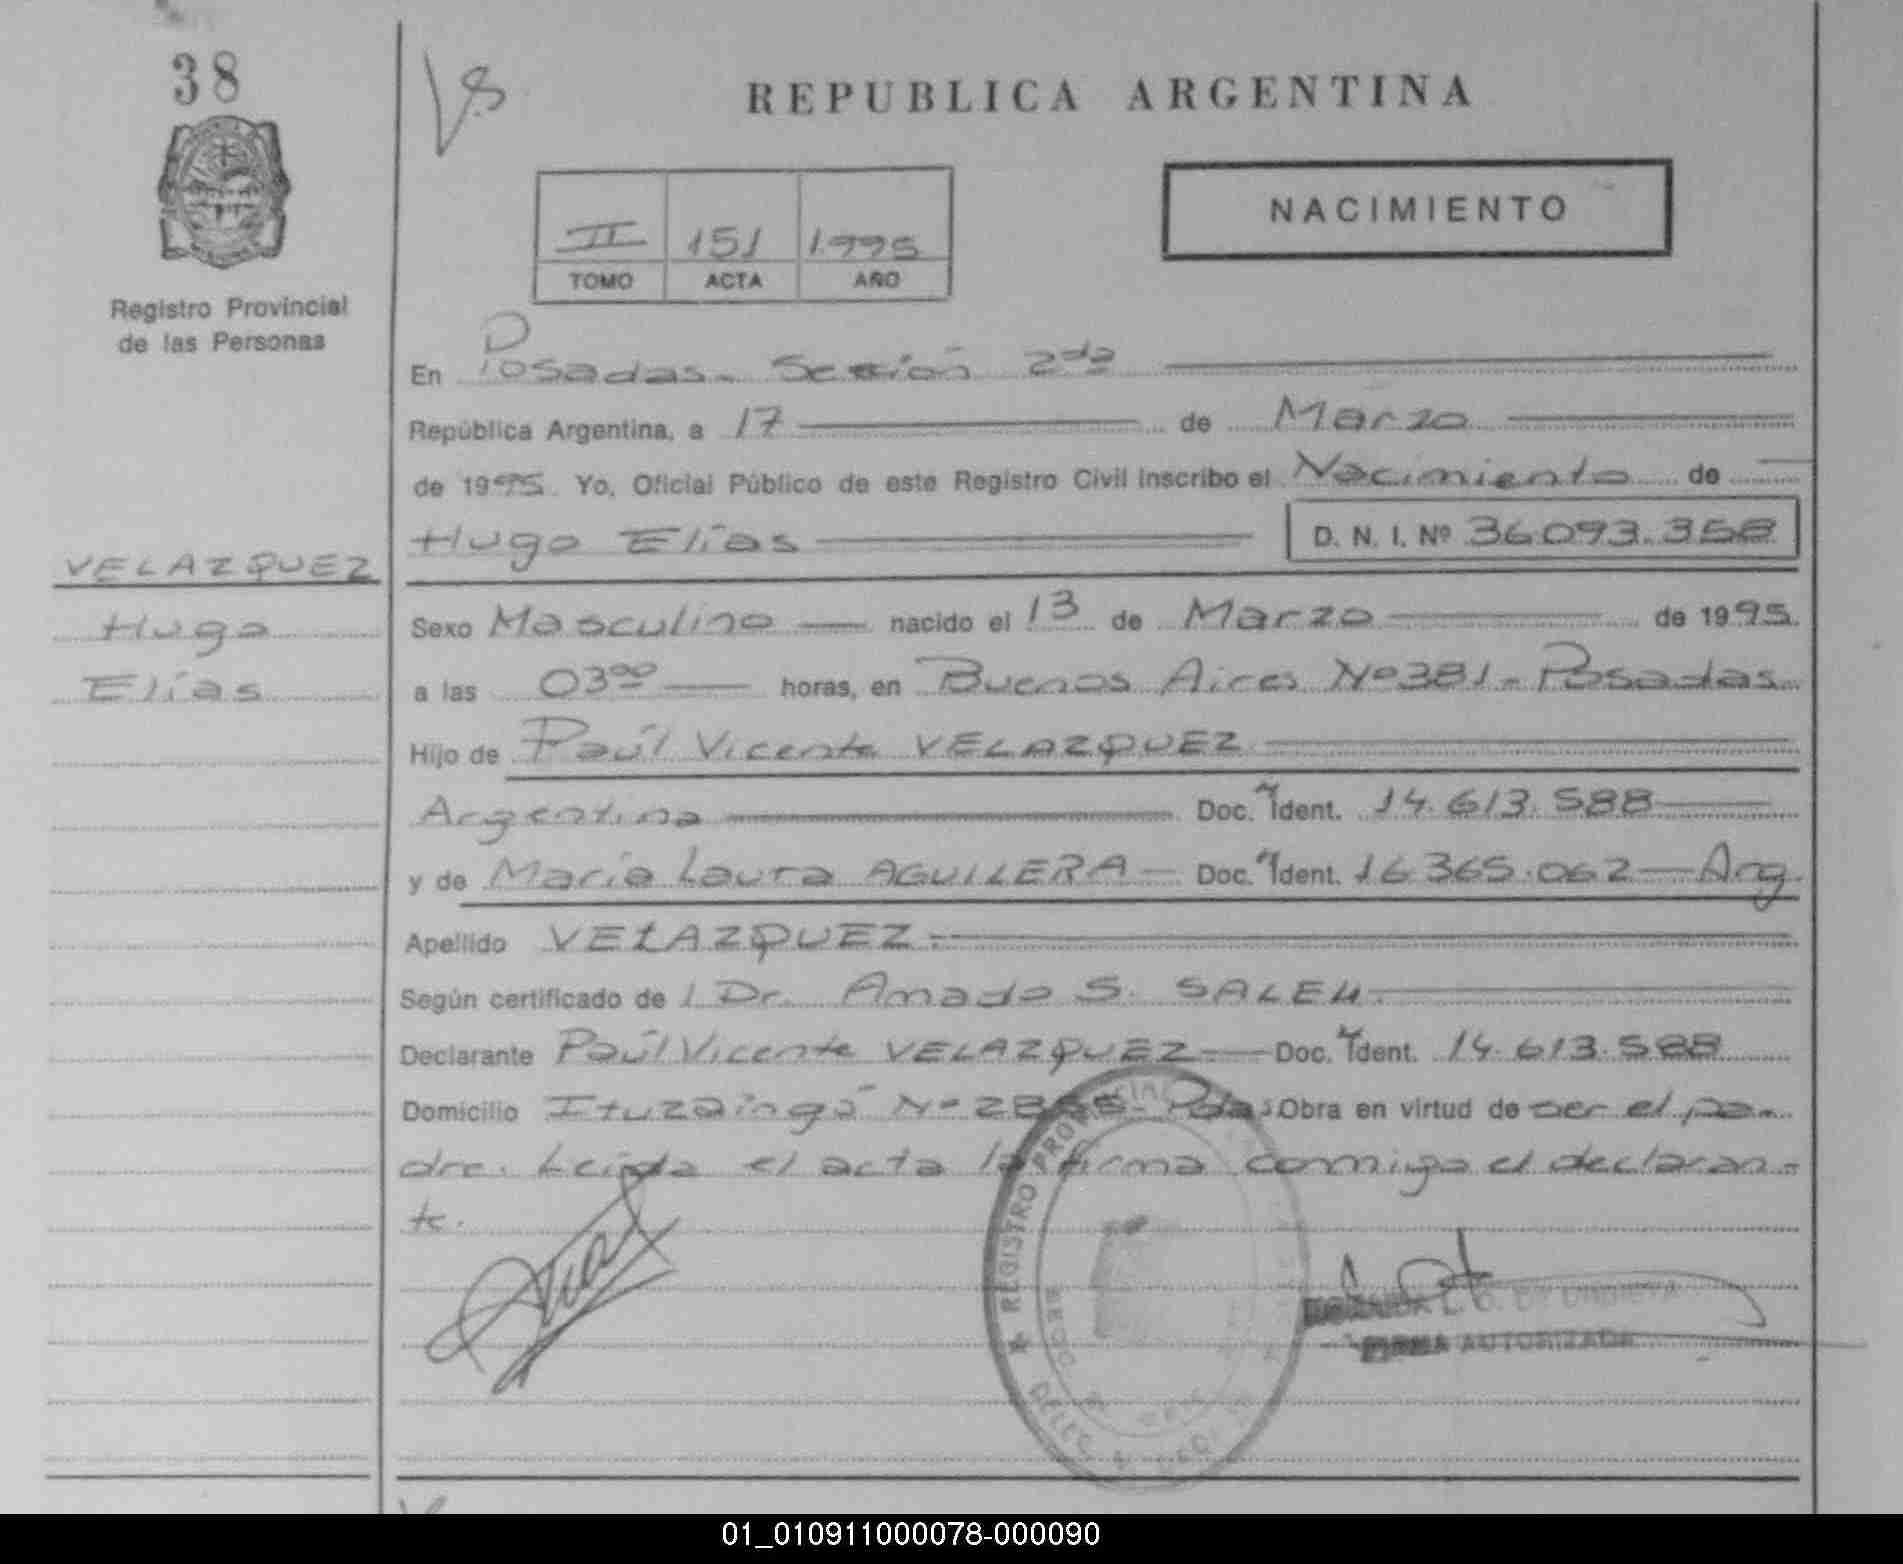 38
REPUBLICA ARGENTINA
NACIMIENTO
II 151 1.995
TOMO ACTA AÑO
Registro Provincial
de las Personas
En Posadas - Sección 2da
República Argentina, a 17 de Marzo
de 1995. Yo, Oficial Público de este Registro Civil inscribo el Nacimiento de
Hugo Elías D. N. I. Nº 36.093.358
VELAZQUEZ
Hugo
Elías
Sexo Masculino nacido el 13 de Marzo de 1995.
a las 03 00 horas, en Buenos Aires Nº 381 - Posadas
Hijo de Paúl Vicente VELAZQUEZ
Argentina Doc. Ident. 14.613.588
y de María Laura AGUILERA Doc. Ident. 16.365.062 Arg.
Apellido VELAZQUEZ.
Según certificado de Dr. Amado S. SALEH.
Declarante Paúl Vicente VELAZQUEZ Doc. Ident. 14.613.588
Domicilio Ituzaingó Nº Pdas. Obra en virtud de ser el pa-
dre. Leída el acta la firma conmigo el declaran-
te.
REGISTRO PROVINCIAL
DELEG.
FIRMA AUTORIZADA
01_010911000078-000090